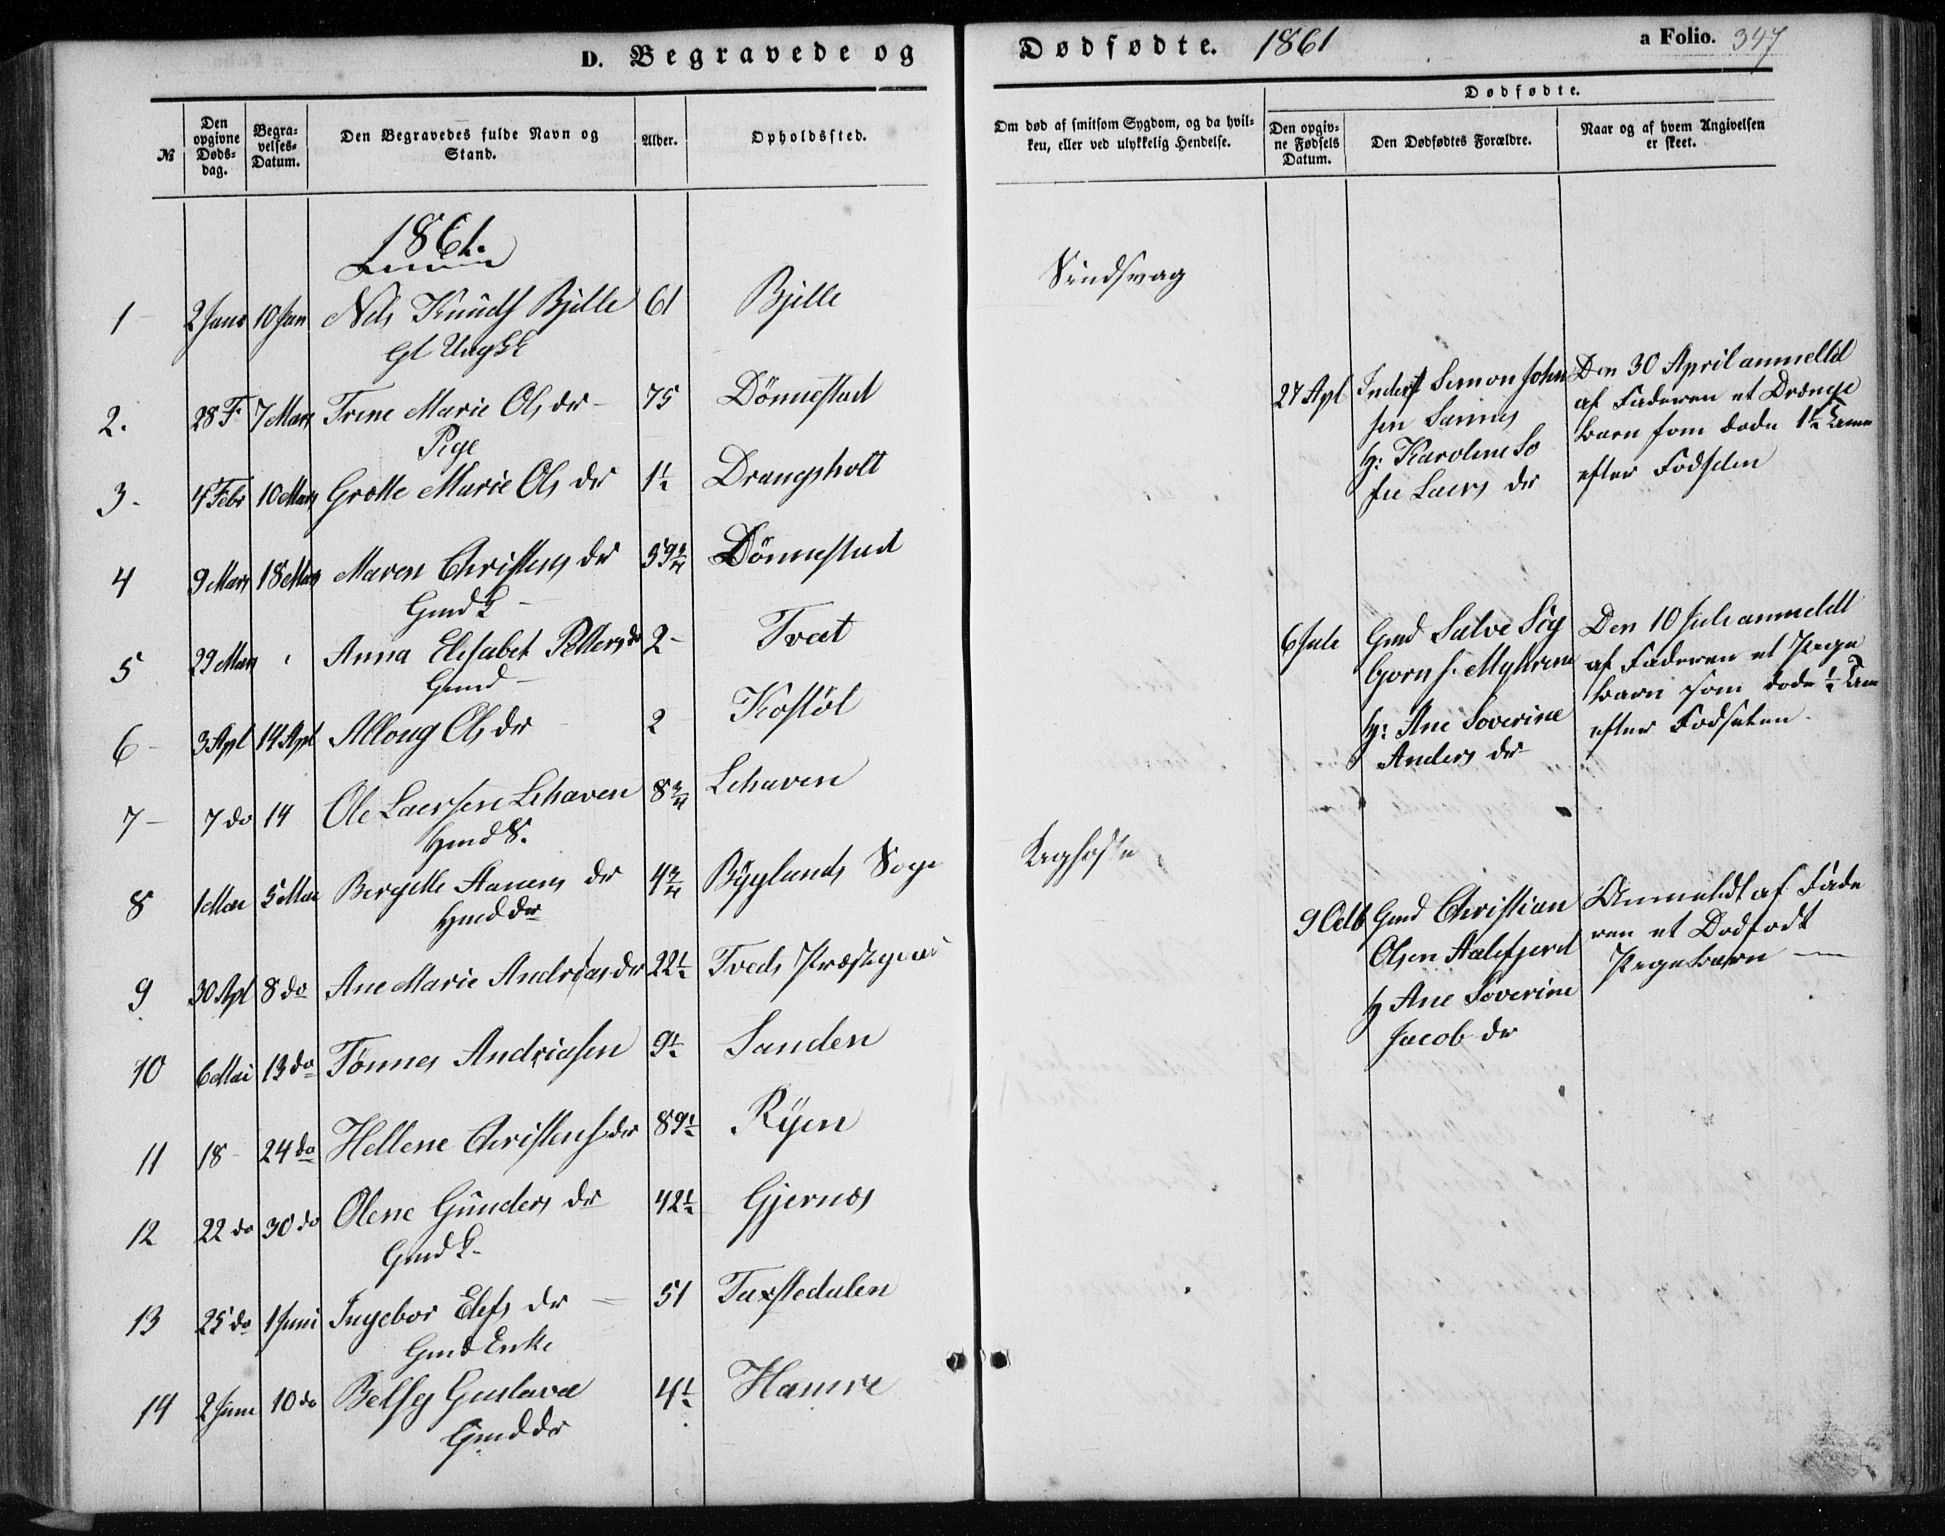 D. Begravede og
Dødfødte. 1861
a Folio. 347
№
Den opgivne Døds-dag.
Begra-velses-Datum.
Den Begravedes fulde Navn og Stand.
Alder.
Opholdssted.
Om død af smitsom Sygdom, og da hvil-ken, eller ved ulykkelig Hendelse.
Dødfødte.
Den opgiv-ne Fødsels Datum.
Den Dødfødtes Forældre.
Naar og af hvem Angivelsen er skeet.
1861.
1 2 Janr 10 Jan Nels Knuds Bjelle 61 Bjelle Sindsvag
Gl Ungk
2. 28 F 7 Mars Trine Marie Ols dr 75 Dönnestad
Pige
3. 4 Febr 10 Mars Grette Marie Ols dr 1½ Drangsholt
4 9 Mars 18 Mars Maren Christens dr 59¾ Dönnestad
Gmd K
5 29 Mars Anna Elisabet Petters dr 2 Tvet
Gmd
6 3 Apl 14 Apl Alloug Ols dr 2 Kostöl
7 7 do 14 Ole Laersen Lehaven 8¾ Lehaven
Hmd S.
8 1 Mai 5 Mai Bergitte Aanens dr 4¾ Byglands Sogn Kighoste
Hmd dr
9 30 Apl 8 do Ane Marie Andreas dr 22½ Tveds Præstegaar
10 6 Mai 13 do Tönnes Andreasen 9½ Sanden
11 18 24 do Hellene Christens dr 89½ Ryen
12 22 do 30 do Olene Gunders dr 42½ Gjernes
Gmd K.
13 25 do 1 Juni Ingebor Elefs dr 51 Taxstedalen
Gmd Enke
14 2 Juni 10 do Betsy Gustava 4½ Hamre
Gmd dr
27 Apl Inderst Simon John
sen Sannes
H: Karoline So
fie Laers dr
Den 30 April anmeldt
af Faderen et Drenge
barn som döde 1½ Time
efter Födselen
6 Juli Gmd Salve Sig
björns. Myhrene
H: Ane Soverine
Anders dr
Den 10 Juli anmeldt
af Faderen et Pige
barn som döde ½ Time
efter Födselen.
9 Octb Gmd Christian
Olsen Aalefjerd
H Ane Soverine
Jacob dr
Anmeldt af Fade
ren et Dodfodt
Pigebarn